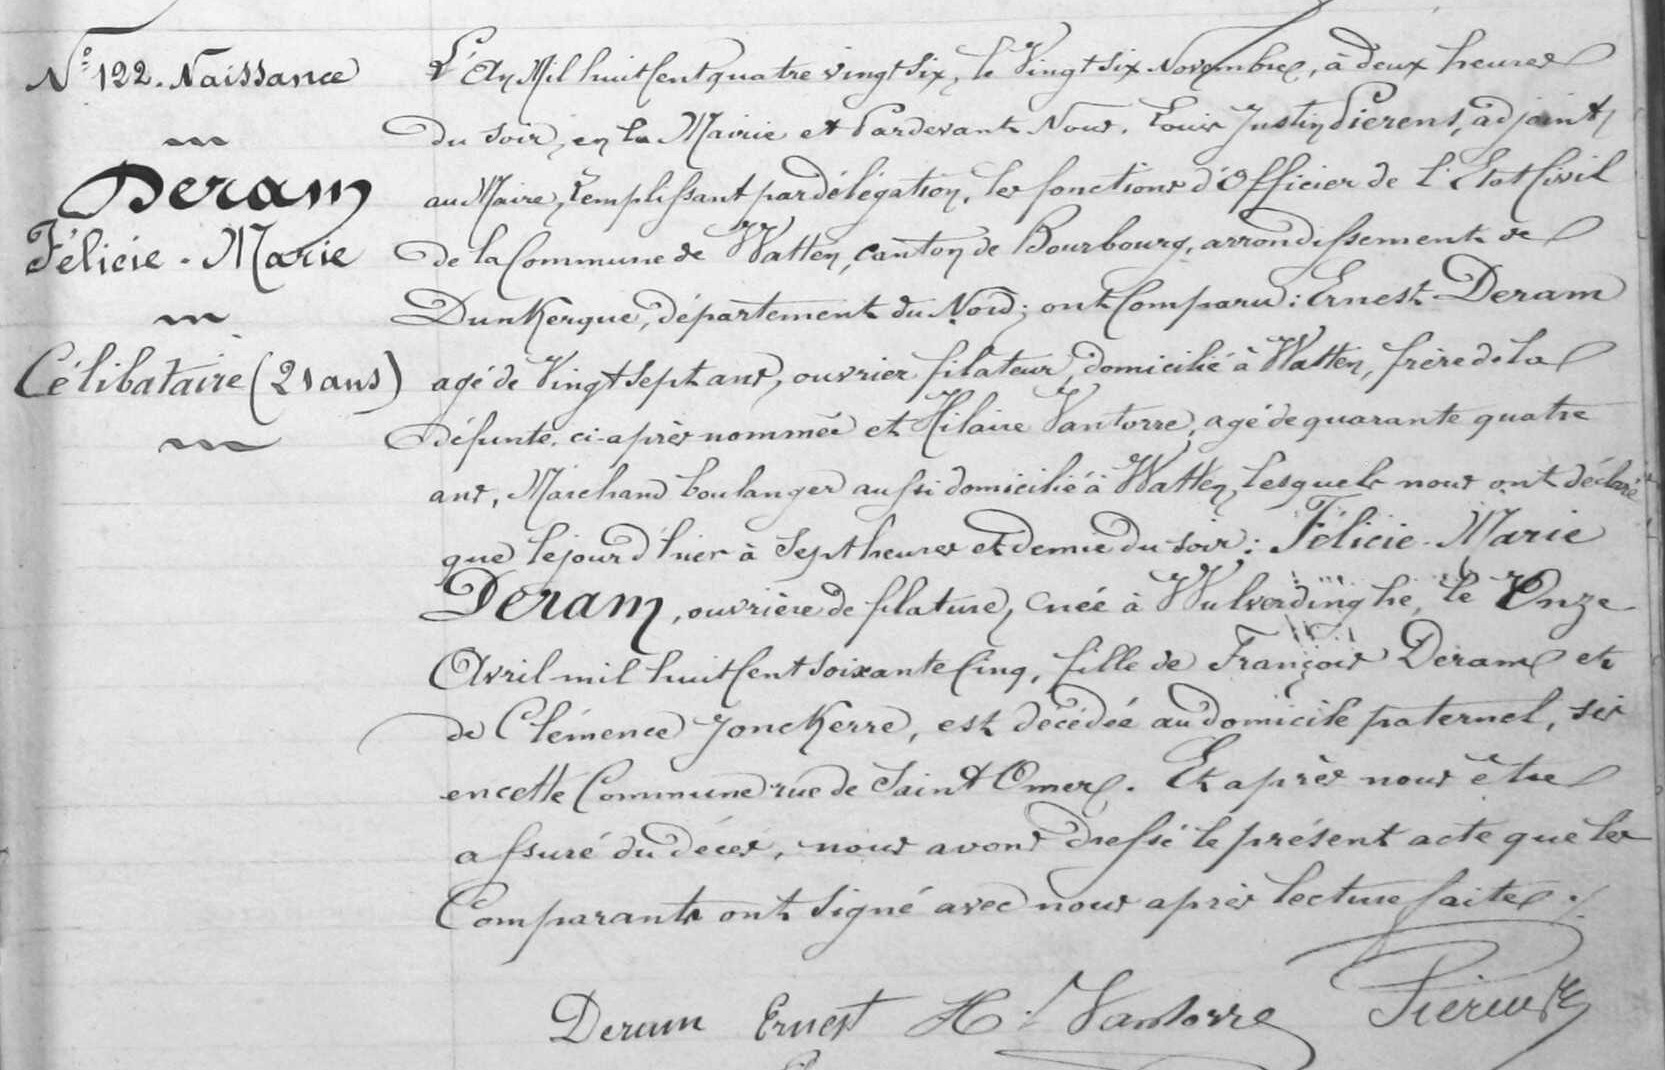 N° 122. Naissance
Deram
Félicie - Marie
Célibataire (21 ans)
L'An Mil huit Cent quatre vingt six, le Vingt six Novembre, à deux heures
du soir, en la Mairie et Pardevant Nous. Louis Justin Pierens, adjoint
au Maire, remplissant par délégation, les fonctions d'Officier de l'Etat Civil
de la Commune de Watten, canton de Bourbourg, arrondissement de
Dunkerque, département du Nord; ont Comparu: Ernest Deram
agé de Vingt sept ans, ouvrier filateur, domicilié à Watten, frère de la
défunte, ci-après nommée et Hilaire Vantorre, agé de quarante quatre
ans, Marchand boulanger aussi domicilié à Watten, lesquels nous ont déclaré
que le jour d'hier à Sept heures et demie du soir: Félicie - Marie
Deram, ouvrière de filature, née à Wulverdinghe, le Onze
Avril mil huit Cent soixante Cinq, fille de François Deram et
de Clémence Jonckerre, est décédée au domicile paternel, sis
en cette Commune rue de Saint Omer. Et après nous être
assuré du décès, nous avons dressé le présent acte que les
Comparants ont signé avec nous après lecture faite ./.
Deram Ernest H. Vantorre Pierens